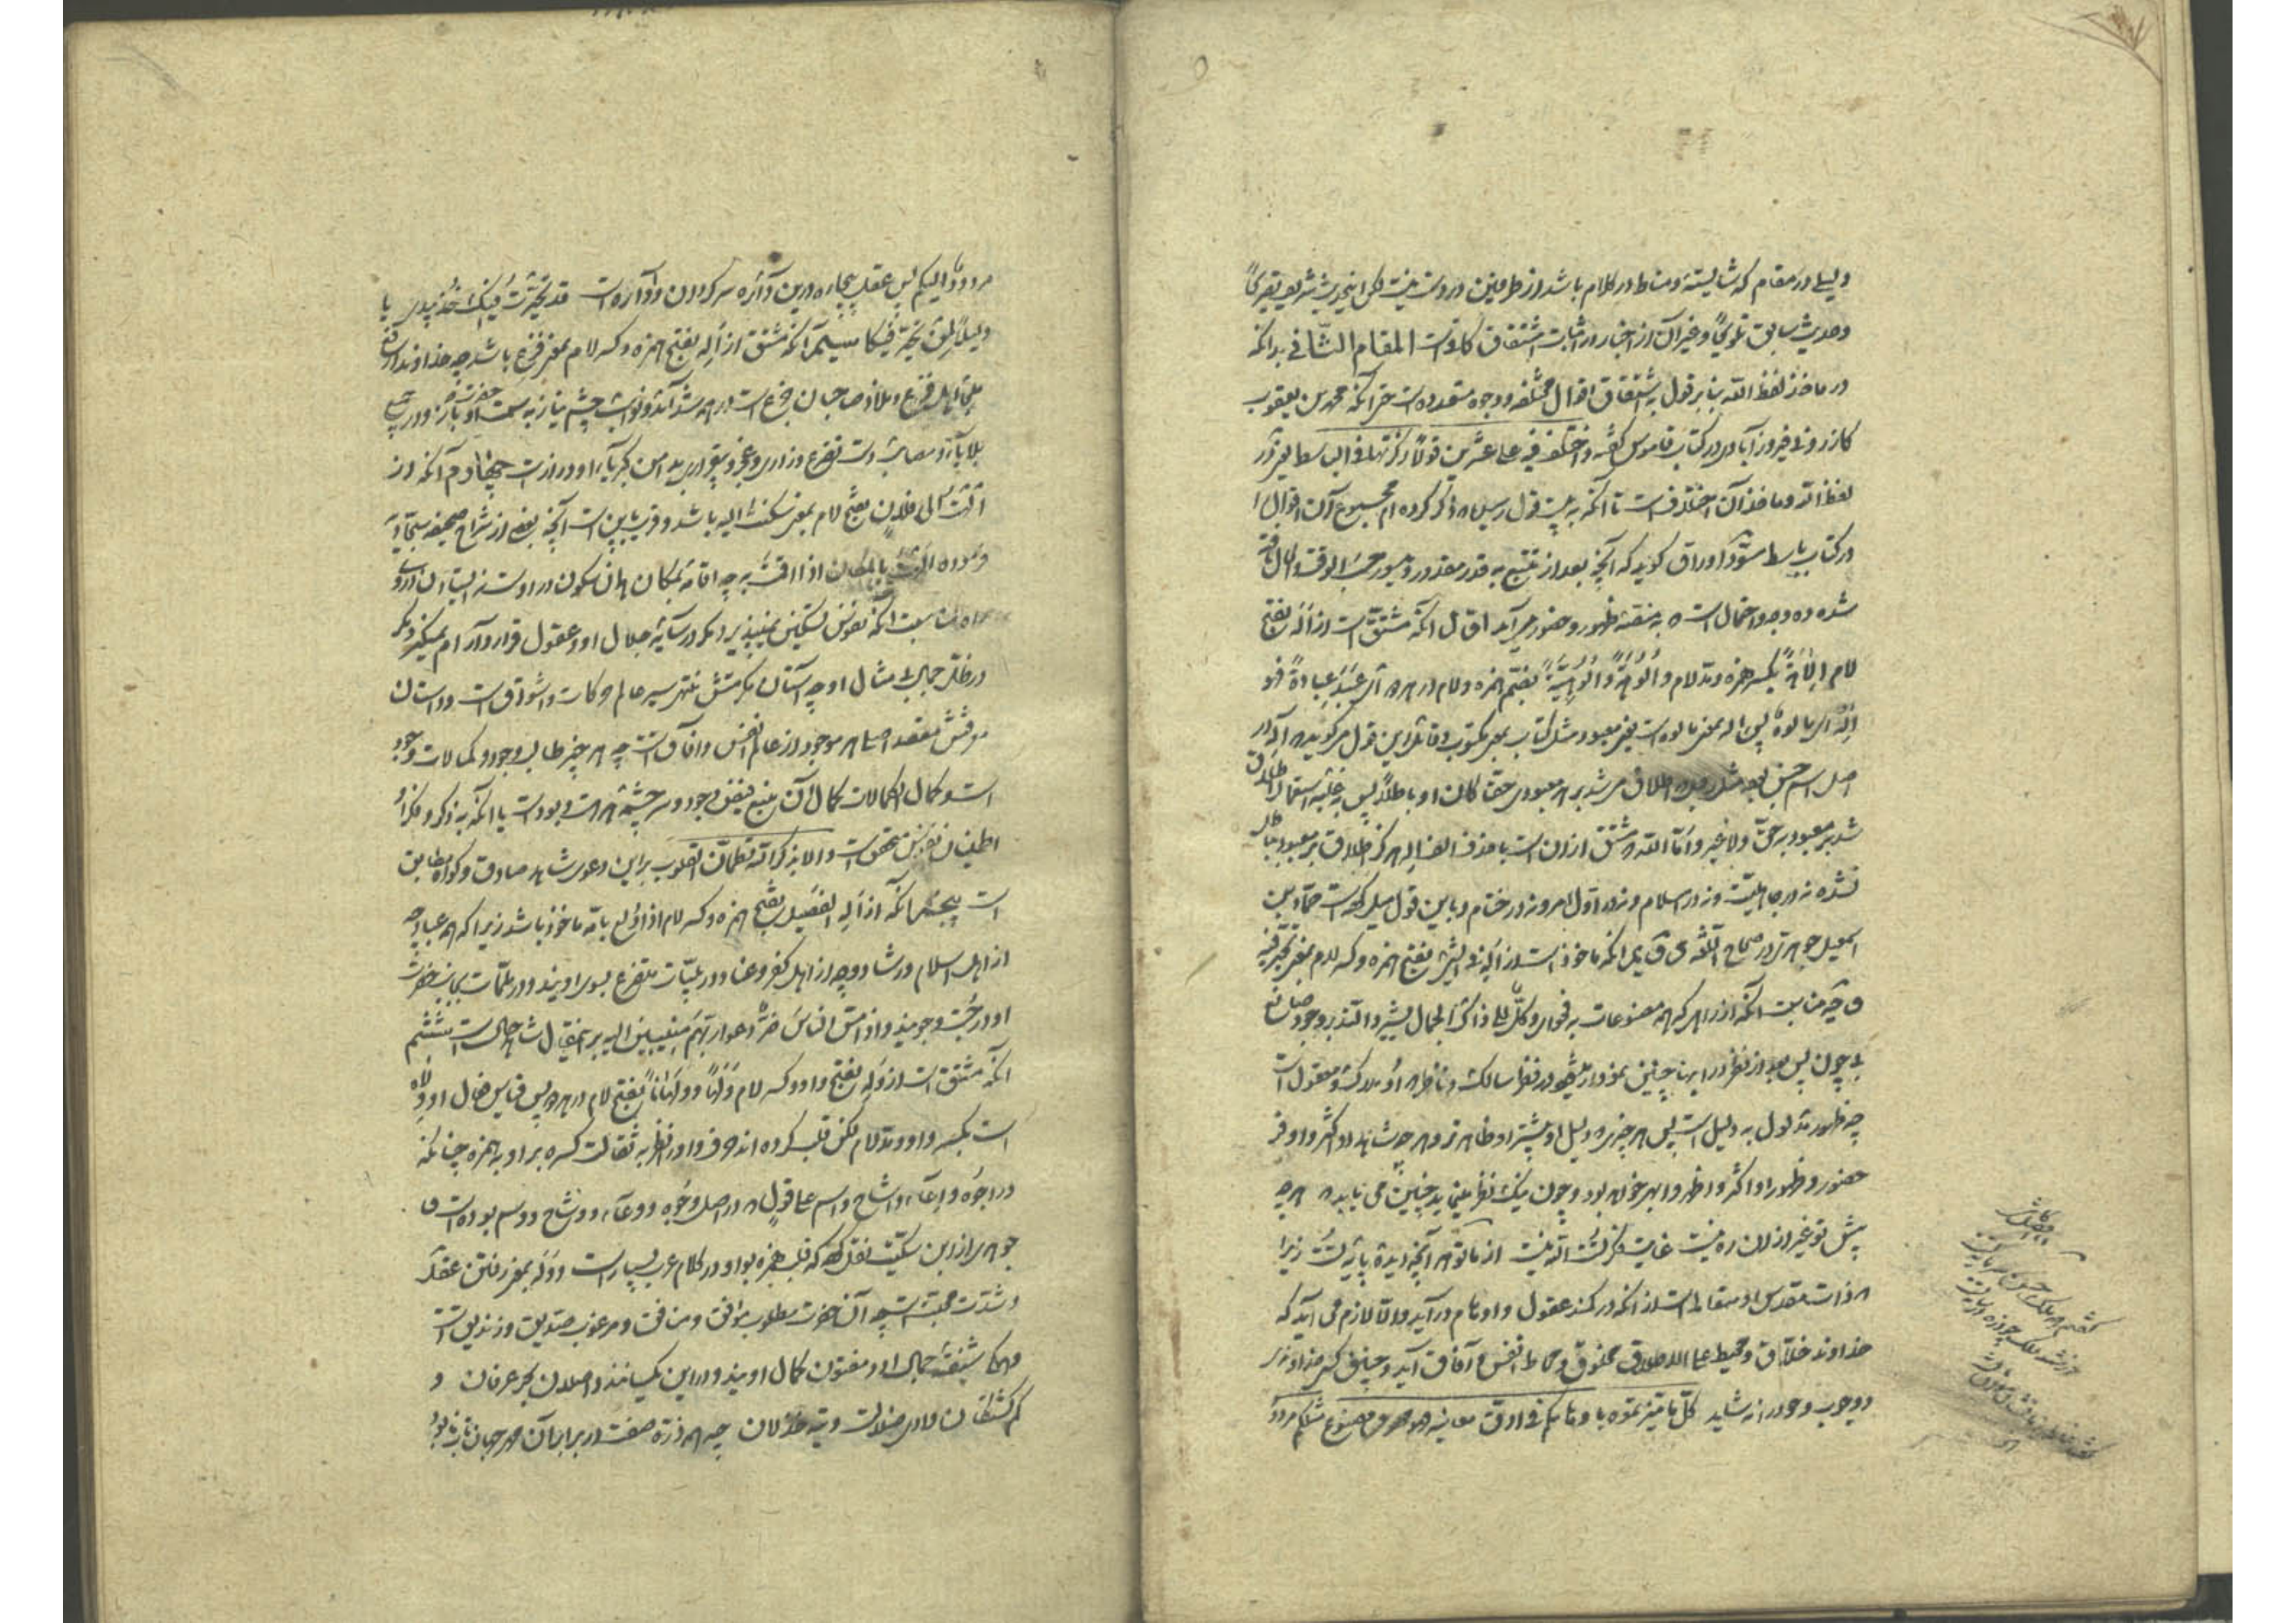 دلیلی در مقام که شایسته مناط در کلام باشد از طرفین در دست نیست لکن اینحدیث شریف تصریحاً
و حدیث سابق تلویحاً و غیر آن از اخبار در اثبات اشتقاق کافی است المقام الثانی بدانکه
در ماخذ لفظ الله بنا بر قول به اشتقاق اقوال مختلفه و وجوه متعدده است حتی آنکه محمد بن یعقوب
کازرونی فیروزآبادی در کتاب قاموس گفته و اختلف فیه علی عشرین قولاً ذکرتها فی الباسط یعنی در
لفظ الله و ماخذ آن اختلاف است تا آنکه به بیست قول رسیده ذکر کرده ام مجموع آن اقوال را
در کتاب باسط مسوّد اوراق گوید که آنچه بعد از تتبع به قدر مقدور و میسور حسب الوقت و الحال یافته
شده ده وجه و احتمال است که به منصّه ظهور و حضور می آید اوّل آنکه مشتق است از اَلَهَ بفتح
لام اِلاهَةً بکسر همزه و مد لام و اُلُوهَةً و اُلُوهِیَّةً بضم همزه و لام در هر دو ای عَبَدَ عِبادةً فهو
اِلٰه ای مالوه پس اله بمعنی مالوه است یعنی معبود مثل کتاب بمعنی مکتوب و قائل این قول میگوید که اله در
اصل اسم جنس بود مثل رجل که اطلاق می شد بر هر معبودی حقاً کان او باطلاً پس به غلبه استعمال اطلاق
شد بر معبود به حق ولا غیر و اما الله که مشتق از ان است با حذف الف اله هرگز اطلاق بر معبود باطل
نشده نه در جاهلیت و نه در اسلام و نه در اول امر و نه در ختام و باین قول میل کرده است حماد بن
اسمعیل جوهری در صحاح اللغه دوّیم آنکه ماخوذ است از اَلِهَ فی الشئ بفتح همزه و کسر لام بمعنی تحیّر فیه
وجه مناسبت آنکه از آنجا که همه مصنوعات به فحوای و کلٌ الی ذاک الجمال یشیر دالّند بر وجود صانع
بی چون پس بعد از نظر در اینها چنین نمودار میشود در نظر سالک و ناظر که او مدرک و معقول است
چه ظهور مدلول به دلیل است پس هر چیزی که دلیل او بیشتر او ظاهرتر و هر چه شاهد او اکثر و اوفر
حضور و ظهور او اکثر و اظهر و ابهر خواهد بود و چون نیک نظر می نماید چنین می یابد که هر چه
پیش تو غیر از ان ره نیست غایت فکر تست الله نیست از ما توهم آنچه دیدهٔ پایهٔ تست زیرا
که ذات مقدس او متعالی است از آنکه در کمند عقول و اوهام در آید و الا لازم می آید که
خداوند خلاق و محیط علی الاطلاق مخلوق و محاط انفس و آفاق آید و چنین کس خداوندی
و وجوب وجود را نشاید کل ما میزتموه باوهامکم فی ادق معانیه فهو مصنوع مثلکم مردود
مردود الیکم پس عقل بیچاره در این دائره سرگردان و آواره است قد تحیّرت فیک خذ بیدی یا
دلیلاً لمن تحیّر فیکا سیّم آنکه مشتق از اَلِهَ بفتح همزه و کسر لام بمعنی فزع باشد چه خداوند
ملجا اهل فزع و ملاذ صاحبان جزع است در همه شدائد و نوائب چشم نیاز به سمت حضرت او باز و در جمیع
بلایا و مصائب دست تضرع و زاری و عجز و بیقراری بدامن کبریای او دراز است چهارم آنکه از
اَلَهتُ الی فلان بفتح لام بمعنی سکنت الیه باشد و قریب باین است آنچه بعض از شراح صحیفه سجادیه
فرموده اَلَهتُ بالمکان اذا اقمت به چه اقامه بمکان همان سکون در اوست
مناسبت آنکه نفوس تسکین نمیپذیرد مگر در سایهٔ جلال او و عقول قرار و آرام نمیگیرد مگر
در ظل جمال بی مثال او چه آستان مکرمتش منتهی سیر عالم حرکات و اشواق است و داستان
معرفتش مقصد اصلی هر موجود از عالم انفس و آفاق است چه هر چیز طالب وجود و کمالات وجود
است و کمال الکمالات کمال آن منبع فیض وجود و سرچشمهٔ هر هست و بود است یا آنکه به ذکر و فکر او
اطمینان نفوس متحقق است و الا بذکر الله تطمئن القلوب بر این دعوی شاهد صادق و گواه مطابق
است پنجم آنکه از اَلِهَ الفصیل بفتح همزه و کسر لام اذا اولع بامه ماخوذ باشد زیرا که همه عباد چه
از اهل اسلام و رشاد و چه از اهل کفر و عناد در بلیّات متضرع بسوی اویند و در ملمّات بجانب حضرت
او در جست و جویند و اذا مس الناس ضرٌ دعوا ربهم منیبین الیه بر این مقال شاهد حال است ششم
آنکه مشتق است از وَلِهَ بفتح واو و کسر لام وَلَهاً و وَلَهاناً بفتح لام در هر دو پس قیاس مثال او وِلاه
است بکسر واو و مد لام لکن قلب کرده اند حرف واو را نظر به ثقالت کسره بر او به همزه چنانکه
در اجوه و اعاء و اشاح و اسم علی قولٍ که در اصل وجوه و وعاء و وشاح و وسم بوده است و
جوهری از ابن سکیت نقل کرده که قلب همزه بواو در کلام عرب بسیار است و وَلَه بمعنی رفتن عقل
و شدت محبت است چه آن حضرت مطلوب موافق و منافق و مرغوب صدیق و زندیق است
و همه شیفتهٔ جمال او و مفتون کمال اویند و در این یکسانند واصلان بحر عرفان و
گم گشتگان وادی ضلالت و تیه خذلان چه همه ذره صفت در برابر آن مهر جهان تاب